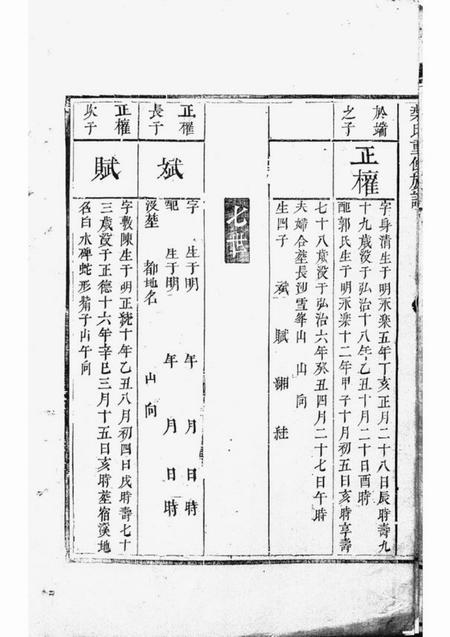 葉氏重修族譜
於端
之子
正權
字身清生于明永樂五年丁亥正月二十八日辰時壽九
十九歲没于弘治十八年乙丑十月二十日酉時
配郭氏生于明永樂十二年甲子十月初五日亥時享壽
七十八歲没于弘治六年癸丑四月二十七日午時
夫婦合塟長沙雪峯山 山向
生四子 斌 賦
七世
正權
長子
斌
字 生于明 年 月 日 時
配 生于明 年 月 日 時
没塟 都地名 山 向
正權
次子
賦
字敷陳生于明正統十年乙丑八月初四日戌時壽七十
三歲没于正德十六年辛巳三月十五日亥時塟宿溪地
名白水碑蛇形 子山午向